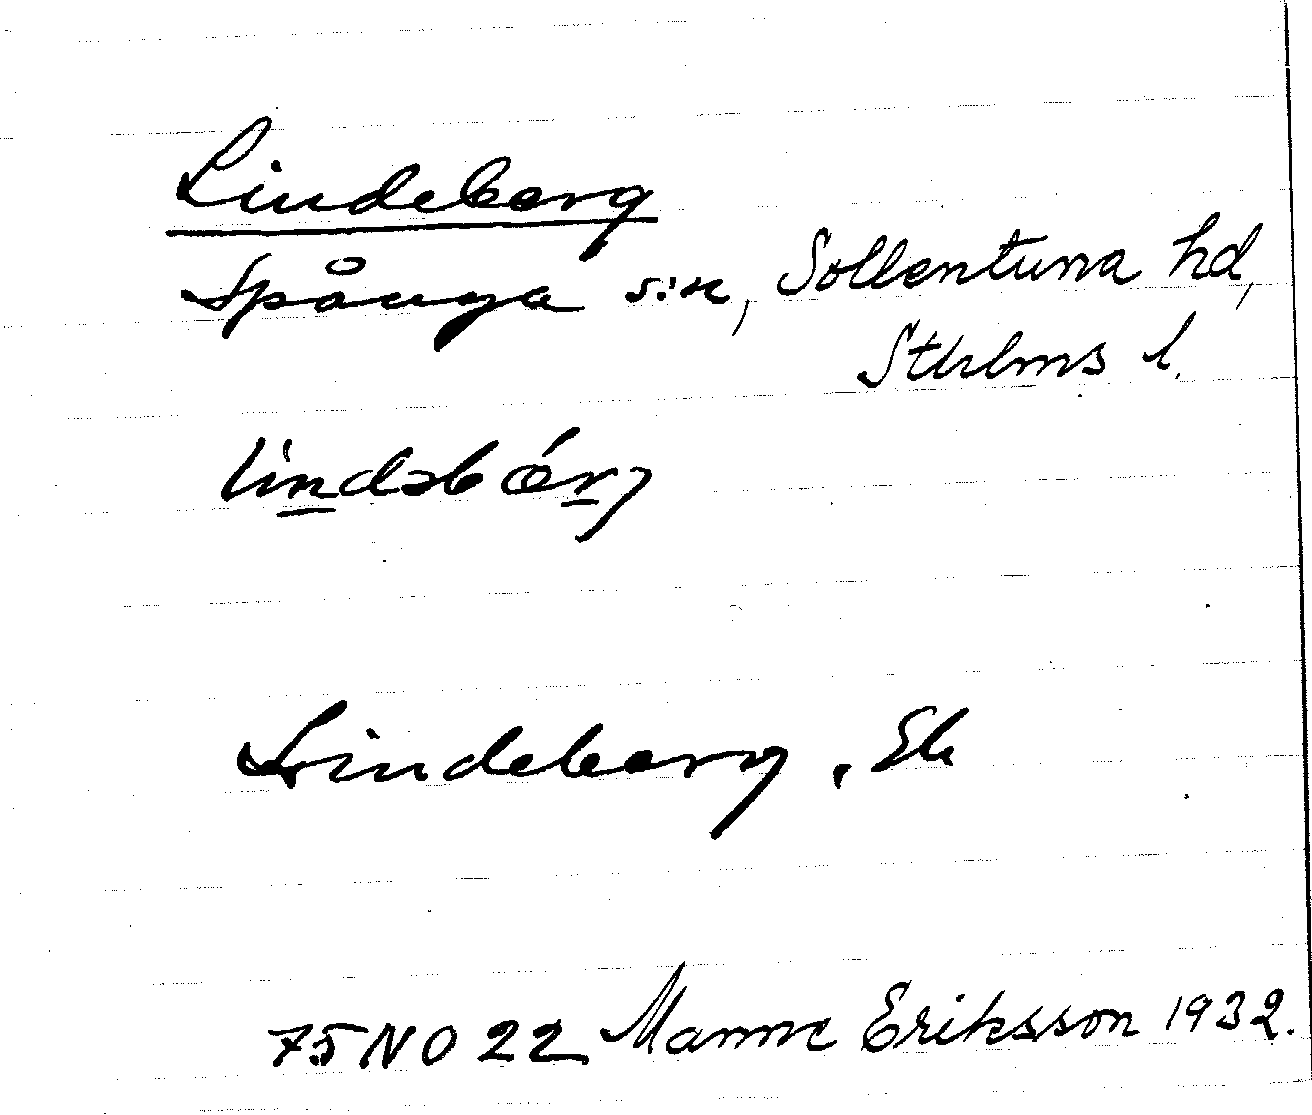 Lindeberg
Spånga s:n, Sollentuna hd,
Sthlms l.
lindəbǽrj
Lindeberg, Ek
75 NO 22 Manne Eriksson 1932.